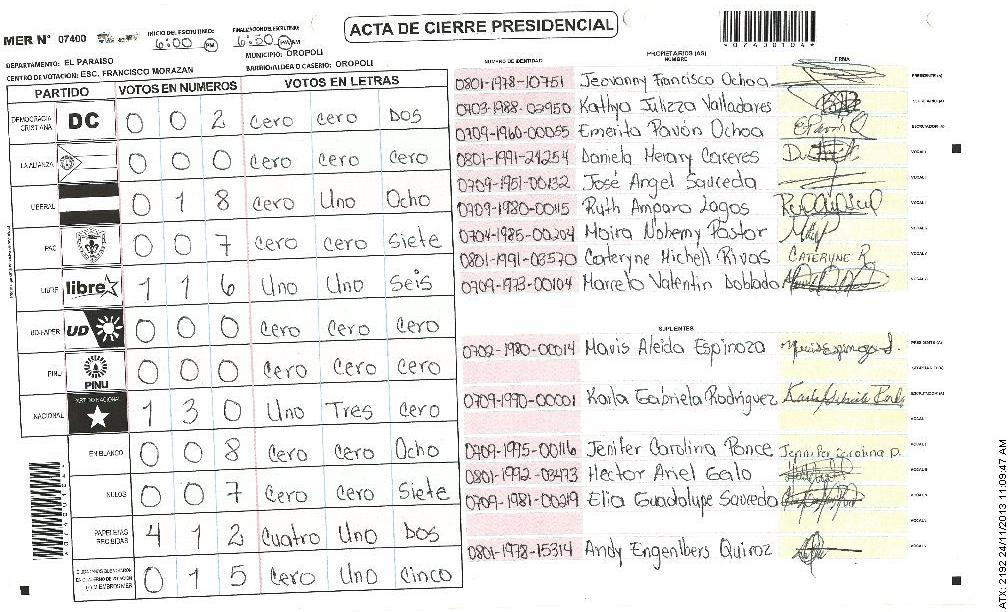 ACTA DE CIERRE PRESIDENCIAL
MER N° 07400
INICIO DEL ESCRUTINIO: 6:00 PM
FINALIZACION DEL ESCRUTINIO: 6:50 PM AM
*07400104*
DEPARTAMENTO: EL PARAISO
MUNICIPIO: OROPOLI
CENTRO DE VOTACION: ESC. FRANCISCO MORAZAN
BARRIO/ALDEA O CASERIO: OROPOLI
PARTIDO VOTOS EN NUMEROS VOTOS EN LETRAS
DEMOCRACIA CRISTIANA DC 0 0 2 cero cero Dos
LA ALIANZA 0 0 0 cero cero cero
LIBERAL 0 1 8 cero Uno Ocho
PAC 0 0 7 cero cero Siete
LIBRE libre 1 1 6 Uno Uno Seis
UD-FAPER UD 0 0 0 cero cero cero
PINU PINU 0 0 0 cero cero cero
NACIONAL PARTIDO NACIONAL 1 3 0 Uno Tres cero
EN BLANCO 0 0 8 cero cero Ocho
NULOS 0 0 7 cero cero Siete
PAPELETAS RECIBIDAS 4 1 2 cuatro Uno Dos
CIUDADANOS QUE VOTARON EN CUADERNO DE VOTACION (+) MIEMBROS MER 0 1 5 cero Uno cinco
NUMERO DE IDENTIDAD
PROPIETARIOS (AS)
NOMBRE
FIRMA
0801-1978-10751 Jeovanny Francisco Ochoa PRESIDENTE (A)
0703-1988-02950 Kathya Julizza Valladares SECRETARIO (A)
0709-1960-00055 Emerita Pavón Ochoa ESCRUTADOR (A)
0801-1991-21254 Daniela Merary Caceres VOCAL I
0709-1951-00132 José Angel Sauceda
0709-1980-00115 Ruth Amparo Lagos
0704-1985-00204 Moira Nohemy Pastor
0801-1991-03570 Cateryne Michell Rivas CATERYNE R
0709-1973-00104 Marcelo Valentin Doblado
SUPLENTES
0702-1980-00014 Mavis Aleida Espinoza PRESIDENTE (A)
SECRETARIO (A)
0709-1990-00001 Karla Gabriela Rodriguez ESCRUTADOR (A)
0709-1995-00116 Jenifer Carolina Ponce Jennifer Carolina P.
0801-1992-03473 Hector Ariel Galo
0709-1981-00219 Elia Guadalupe Sauceda
0801-1978-15314 Andy Engenlbers Quiroz
ATX: 2192 24/11/2013 11:09:47 AM